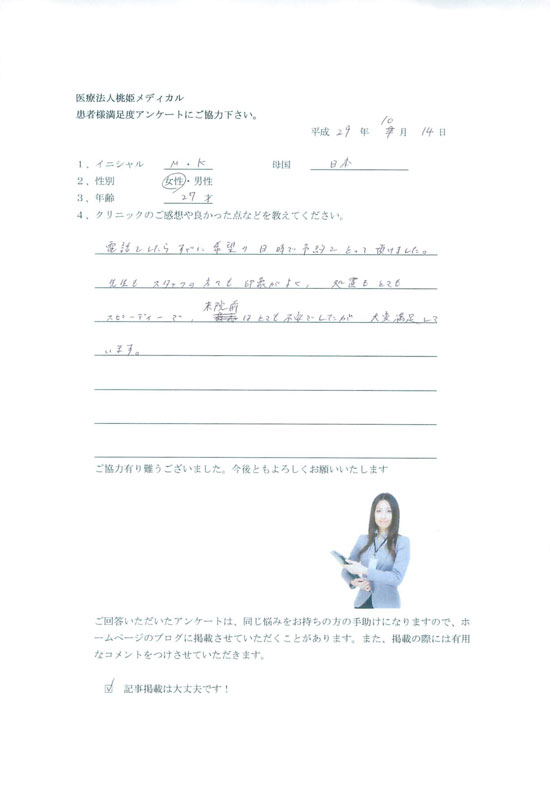 医療法人桃姫メディカル
患者様満足度アンケートにご協力下さい。
平成 29 年 10 月 14 日
1、イニシャル M・K 母国 日本
2、性別 女性・男性
3、年齢 27才
4、クリニックのご感想や良かった点などを教えてください。
電話をしたらすぐに希望の日時で予約をとって頂けました。
先生もスタッフの方々も印象がよく、処置もとても
スピーディーで、来院前はとても不安でしたが大変満足して
います。
ご協力有り難うございました。今後ともよろしくお願いいたします
ご回答いただいたアンケートは、同じ悩みをお持ちの方の手助けになりますので、ホ
ームページのブログに掲載させていただくことがあります。また、掲載の際には有用
なコメントをつけさせていただきます。
☑ 記事掲載は大丈夫です！